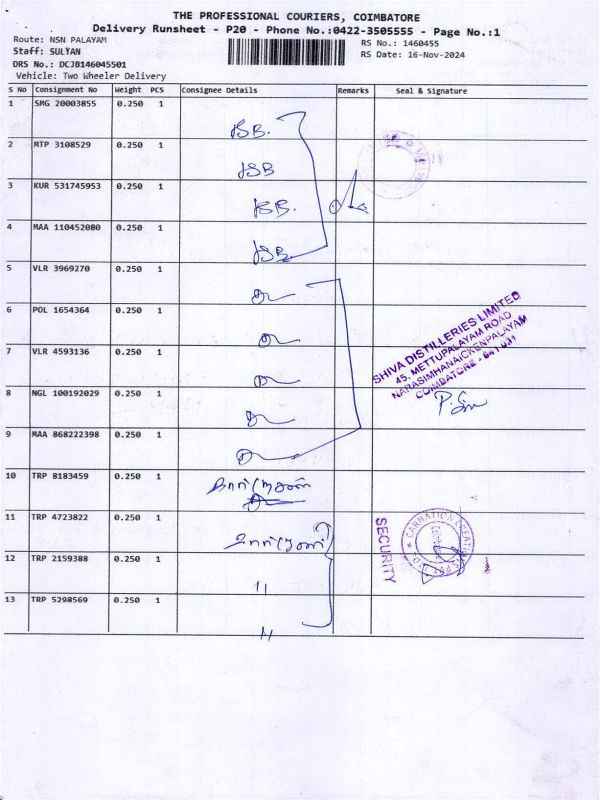 THE PROFESSIONAL COURIERS, COIMBATORE
Delivery Runsheet - P20 - Phone No.:0422-3505555 - Page No.:1
Route: NSN PALAYAM
RS No.: 1460455
Staff: SULTAN
RS Date: 16-Nov-2024
DRS No.: DCJB146045501
Vehicle: Two Wheeler Delivery
S No Consignment No Weight PCS Consignee Details Remarks Seal & Signature
1 SMG 20003855 0.250 1
2 MTP 3108529 0.250 1
3 KUR 531745953 0.250 1
4 MAA 110452080 0.250 1
5 VLR 3969270 0.250 1
6 POL 1654364 0.250 1
7 VLR 4593136 0.250 1
SHIVA DISTILLERIES LIMITED
45, METTUPALAYAM ROAD
NARASIMHANAICKENPALAYAM
COIMBATORE - 641 031
8 NGL 100192029 0.250 1
9 MAA 868222398 0.250 1
10 TRP 8183459 0.250 1
11 TRP 4723822 0.250 1
SECURITY
CARNATION CREATIONS
12 TRP 2159388 0.250 1
13 TRP 5298569 0.250 1